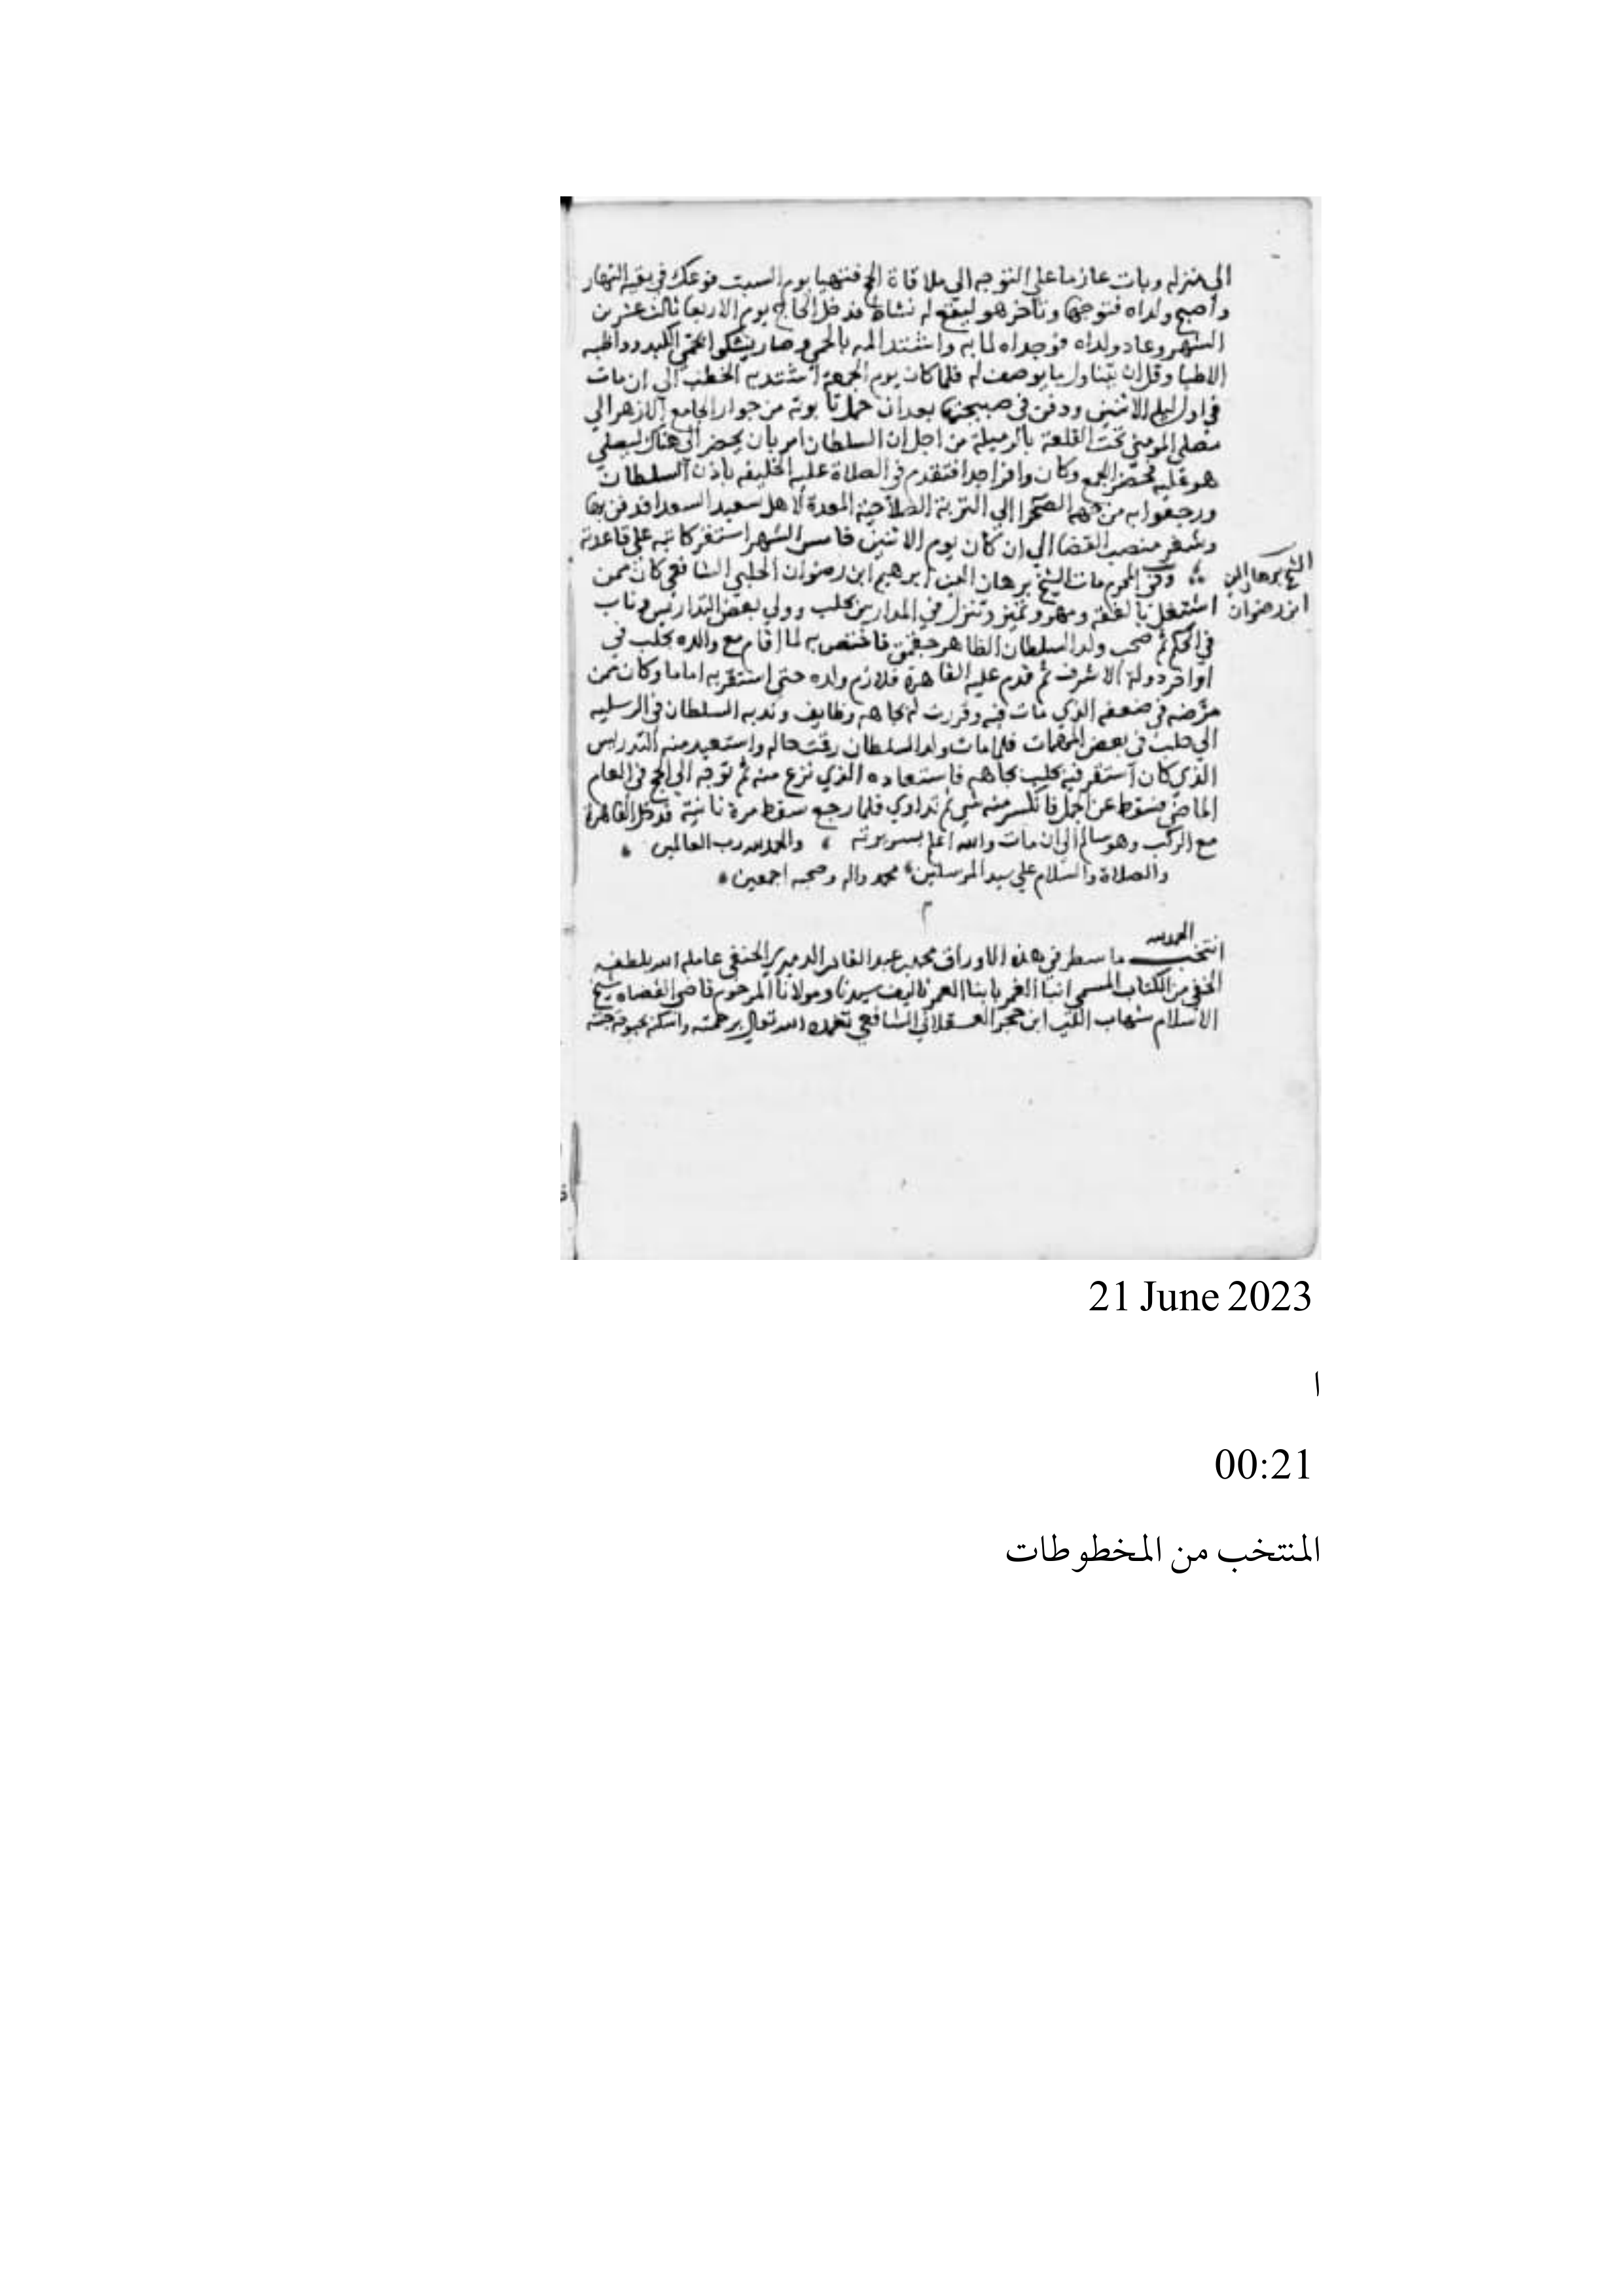 الي منزله وبات عازما علي التوجه الي ملاقاة الحج فتهيا يوم السبت فوعك في بقية النهار
واصبح ولداه فتوجها وتاخر هو ليقع له نشاط فدخل الحاج يوم الاربعا ثالث عشرين
الشهر وعاد ولداه فوجداه لما به واشتد المه بالحمي وصار يشكوا الكبد وواظبه
الاطبا وقل ان يتناول ما يوصف له فلما كان يوم الجمعة اشتد به الخطب الي ان مات
في اول ليلة الاثنين ودفن في صبيحتها بعد ان حمل تابوته من جوار الجامع الازهر الي
مصلي المومني تحت القلعة بالرميلة من اجل ان السلطان امر بان يحضر الي هناك ليصلي
هو عليه فحضر الجمع وكان وافرا جدا فتقدم في الصلاة عليه الخليفه باذن السلطان
ورجعوا به من جهه الصحرا الي التربة الصلاحية المعدة لاهل سعيد السعدا فدفن بها
وشغر منصب القضا الي ان كان يوم الاثنين خامس الشهر استقر كاتبه علي قاعدته
الشيخ برهان الدين
ابن رضوان
وفي المحرم مات الشيخ برهان الدين ابرهيم ابن رضوان الحلبي الشافعي كان ممن
اشتغل بالفقه ومهر وتميز وتنزل في المدارس بحلب وولي بعض التداريس وناب
في الحكم ثم صحب ولد السلطان الظاهر جقمق فاختص به لما اقام مع والده بحلب في
اواخر دولة الاشرف ثم قدم عليه القاهرة فلازم ولده حتي استقر به اماما وكان ممن
مرضه في ضعفه الذي مات فيه وقررت له بجاهه وظايف وندبه السلطان في الرسليه
الي حلب في بعض المهمات فلما مات ولد السلطان رقت حاله واستعيد منه التدريس
الذي كان استقر فيه بحلب بجاهه فاستعاده الذي نزع منه ثم توجه الي الحج في العام
الماضي فسقط عن الجمل فانكسر منه شي ثم تداوي فلما رجع سقط مرة ثانية فدخل القاهرة
مع الركب وهو سالم الي ان مات والله اعلم بسريرته والحمد لله رب العالمين
والصلاة والسلام علي سيد المرسلين محمد واله وصحبه اجمعين
م
الحمد لله
انتخب ما سطر في هذه الاوراق محمد بن عبد القادر الدميري الحنفي عامله الله بلطفه
الخفي من الكتاب المسمي انبا الغمر بابنا العمر تاليف سيدنا ومولانا المرحوم قاضي القضاه شيخ
الاسلام شهاب الدين ابن حجر العسقلاني الشافعي تغمده الله تعالي برحمته واسكنه بحبوحة جنته
21 June 2023
ا
00:21
المنتخب من المخطوطات